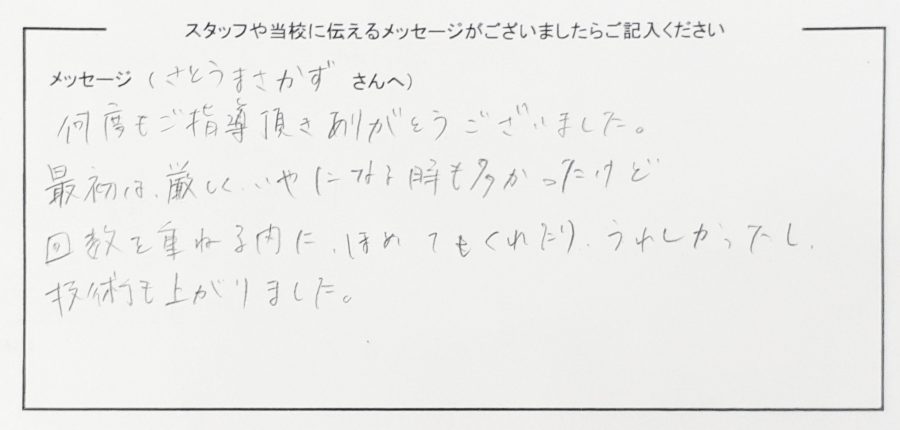 スタッフや当校に伝えるメッセージがございましたらご記入ください
メッセージ (さとうまさかず さんへ)
何度もご指導頂きありがとうございました。
最初は、厳しく、いやになる時も多かったけど
回数を重ねる内に、ほめてもくれたり、うれしかったし、
技術も上がりました。